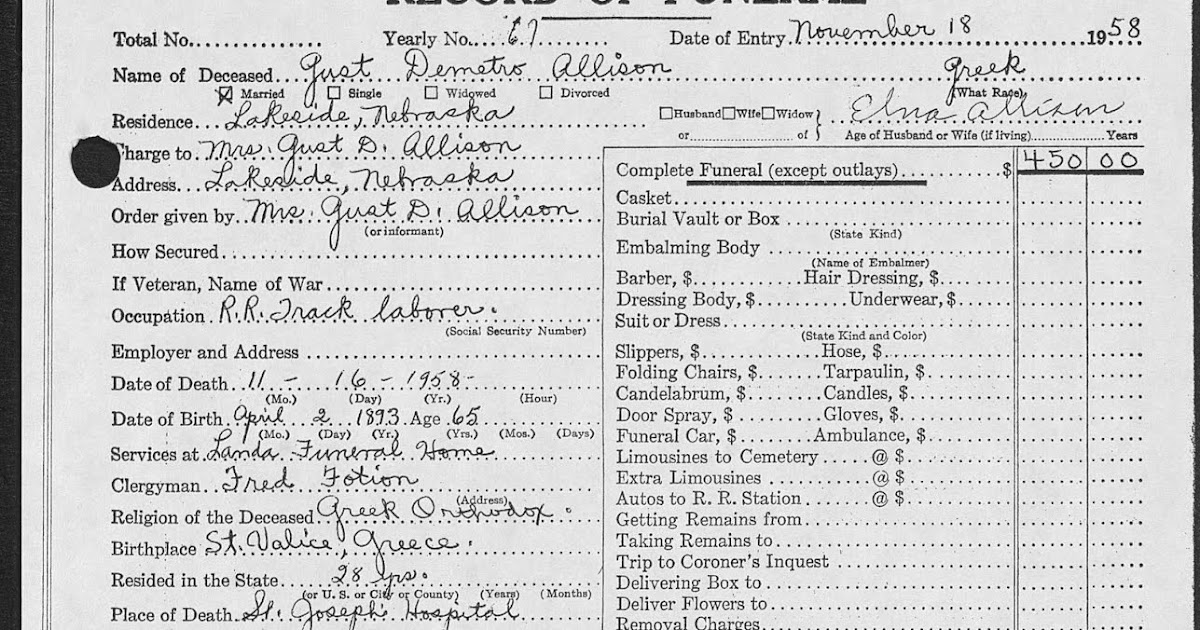 RECORD OF FUNERAL
Total No. Yearly No. 67 Date of Entry November 18 1958
Name of Deceased Gust Demetro Allison Greek
☒ Married ☐ Single ☐ Widowed ☐ Divorced (What Race)
Residence Lakeside, Nebraska ☐Husband☐Wife☐Widow} Elna Allison
or of Age of Husband or Wife (if living) Years
Charge to Mrs. Gust D. Allison
Address Lakeside, Nebraska
Order given by Mrs. Gust D. Allison
(or informant)
How Secured
If Veteran, Name of War
Occupation R.R. Track laborer.
(Social Security Number)
Employer and Address
Date of Death 11 - 16 - 1958 -
(Mo.) (Day) (Yr.) (Hour)
Date of Birth April 2 1893 Age 65
(Mo.) (Day) (Yr.) (Yrs.) (Mos.) (Days)
Services at Landa Funeral Home
Clergyman Fred Fotion
(Address)
Religion of the Deceased Greek Orthodox.
Birthplace St. Valice, Greece.
Resided in the State 28 yrs.
(or U. S. or City or County) (Years) (Months)
Place of Death St. Joseph's Hospital
Complete Funeral (except outlays) $ 450 00
Casket
Burial Vault or Box
(State Kind)
Embalming Body
(Name of Embalmer)
Barber, $ Hair Dressing, $
Dressing Body, $ Underwear, $
Suit or Dress
(State Kind and Color)
Slippers, $ Hose, $
Folding Chairs, $ Tarpaulin, $
Candelabrum, $ Candles, $
Door Spray, $ Gloves, $
Funeral Car, $ Ambulance, $
Limousines to Cemetery @ $
Extra Limousines @ $
Autos to R. R. Station @ $
Getting Remains from
Taking Remains to
Trip to Coroner's Inquest
Delivering Box to
Deliver Flowers to
Removal Charges